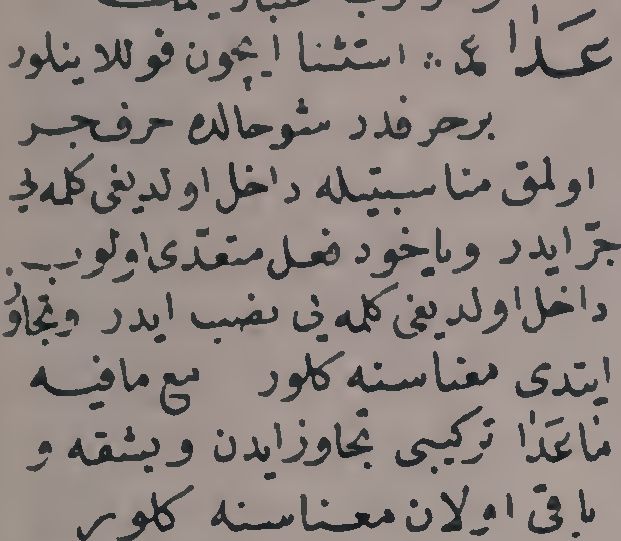 عَدَا عـ ⁘ استثنا ایچون قوللاینلور
بر حرفدر شو حالده حرف جر
اولمق مناسبتیله داخل اولدیغی کلمه یی
جرّ ایدر ویاخود فعل متعدّی اولوب
داخل اولدیغی کلمه یی نصب ایدر وتجاوُز
ایتدی معناسنه کلور مع مافیه
مَاعَدَا ترکیبی تجاوز ایدن وبشقه و
باقی اولان معناسنه کلور